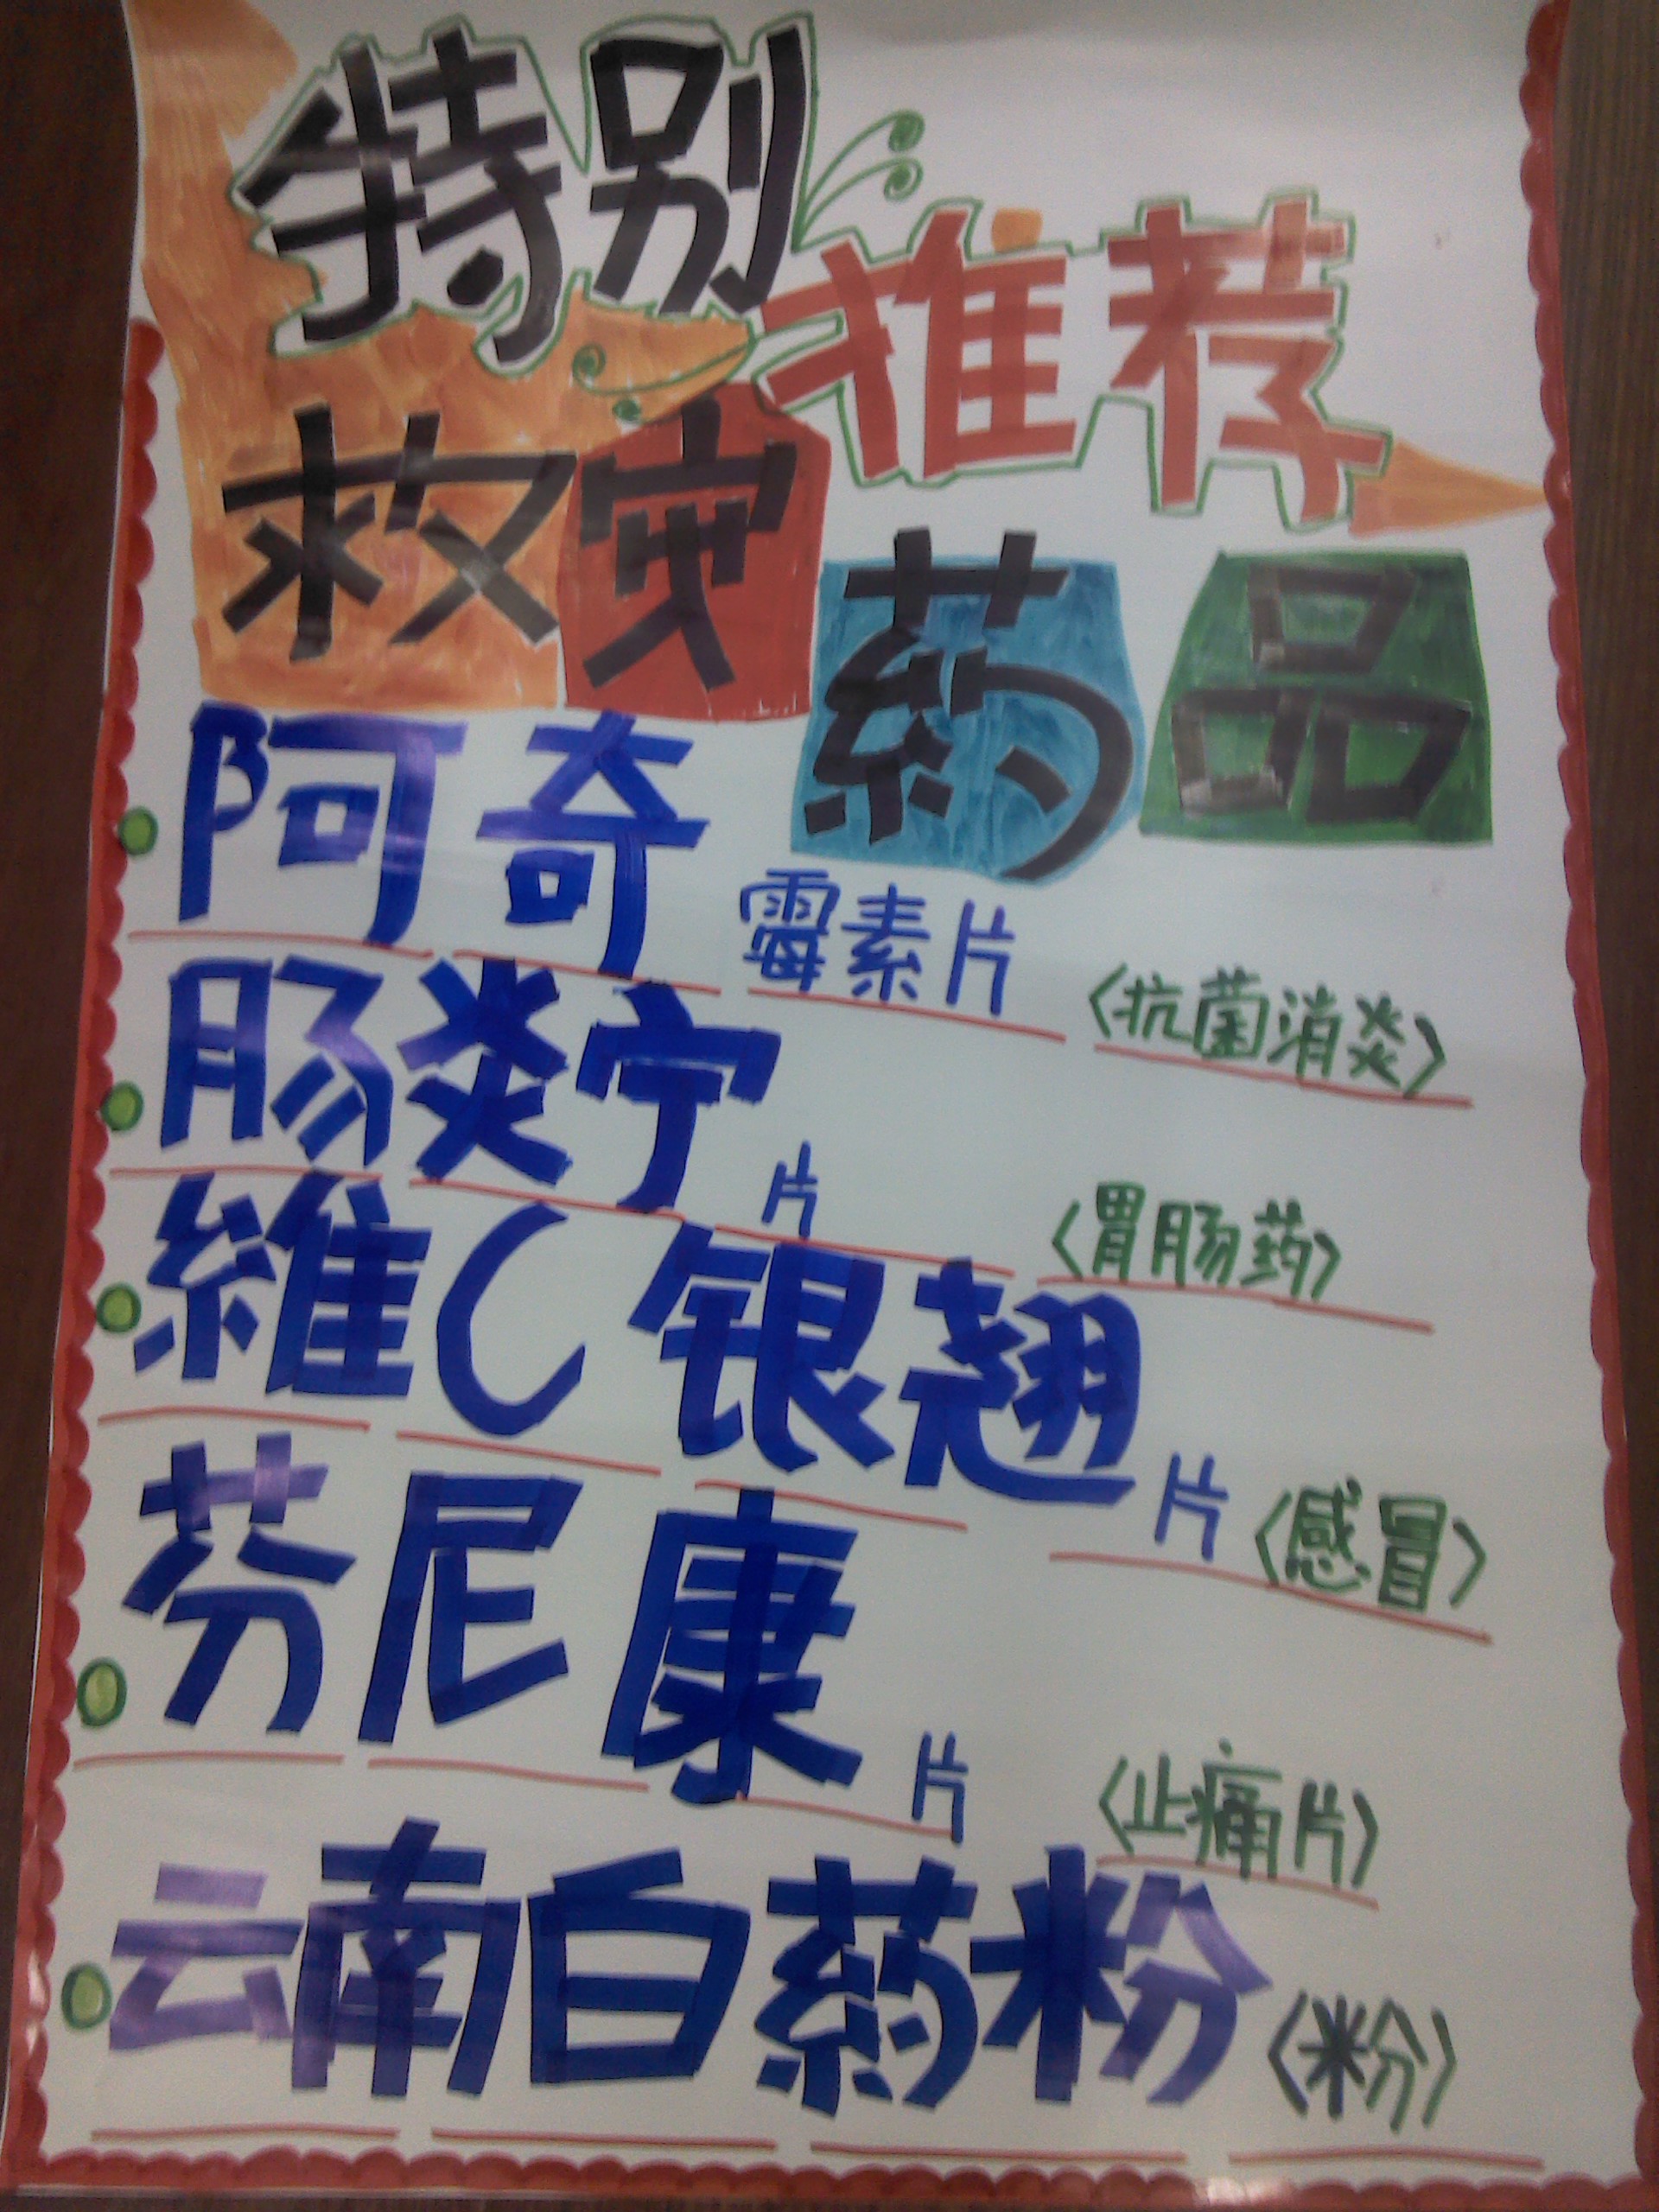 特别
推荐
救灾药品
阿奇霉素片〈抗菌消炎〉
肠炎宁片〈胃肠药〉
維C银翘片〈感冒〉
芬尼康片〈止痛片〉
云南白药粉〈粉〉